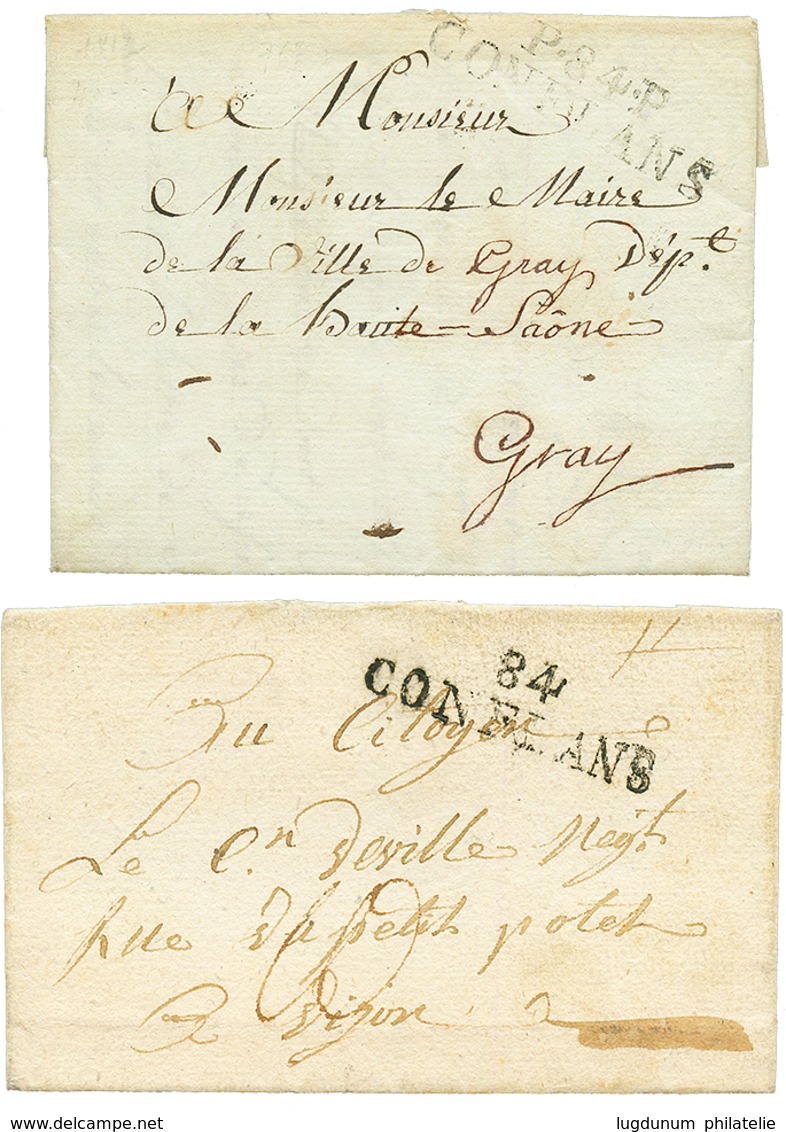 P.84.P
CONFLANS
A Monsieur
Monsieur le Maire
de la Ville de Gray Dép.t
de la haute-Saône
Gray
84
CONFLANS
Au Citoyen
Le C.n Deville Neg.t
Rue du petit potet
A Dijon
delcampe.net
lugdunum philatelie